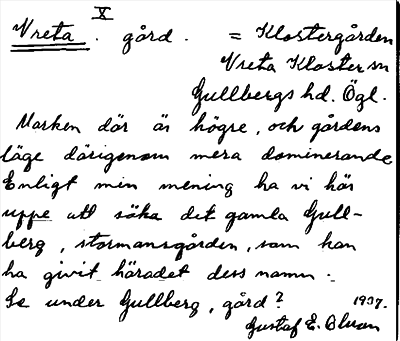 X
Vreta . gård . = Klostergården
Vreta Kloster sn
Gullbergs hd. Ögl.
Marken där är högre, och gårdens
läge därigenom mera dominerande
Enligt min mening ha vi här
uppe att söka det gamla Gull-
berg, stormansgården, som kan
ha givit häradet dess namn.
Se under Gullberg, gård? 1937.
Gustaf E. Bluan